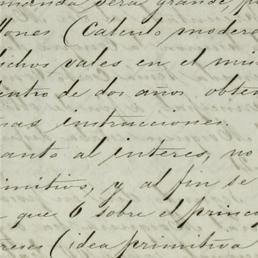 manda será grande, p
llones (Cálculo moder
ichos vales en el mis
dentro de dos años obten
nas instrucciones.
anto al interes, no
imitivos, y al fin se
que 6 sobre el princ
reses (idea primitiva